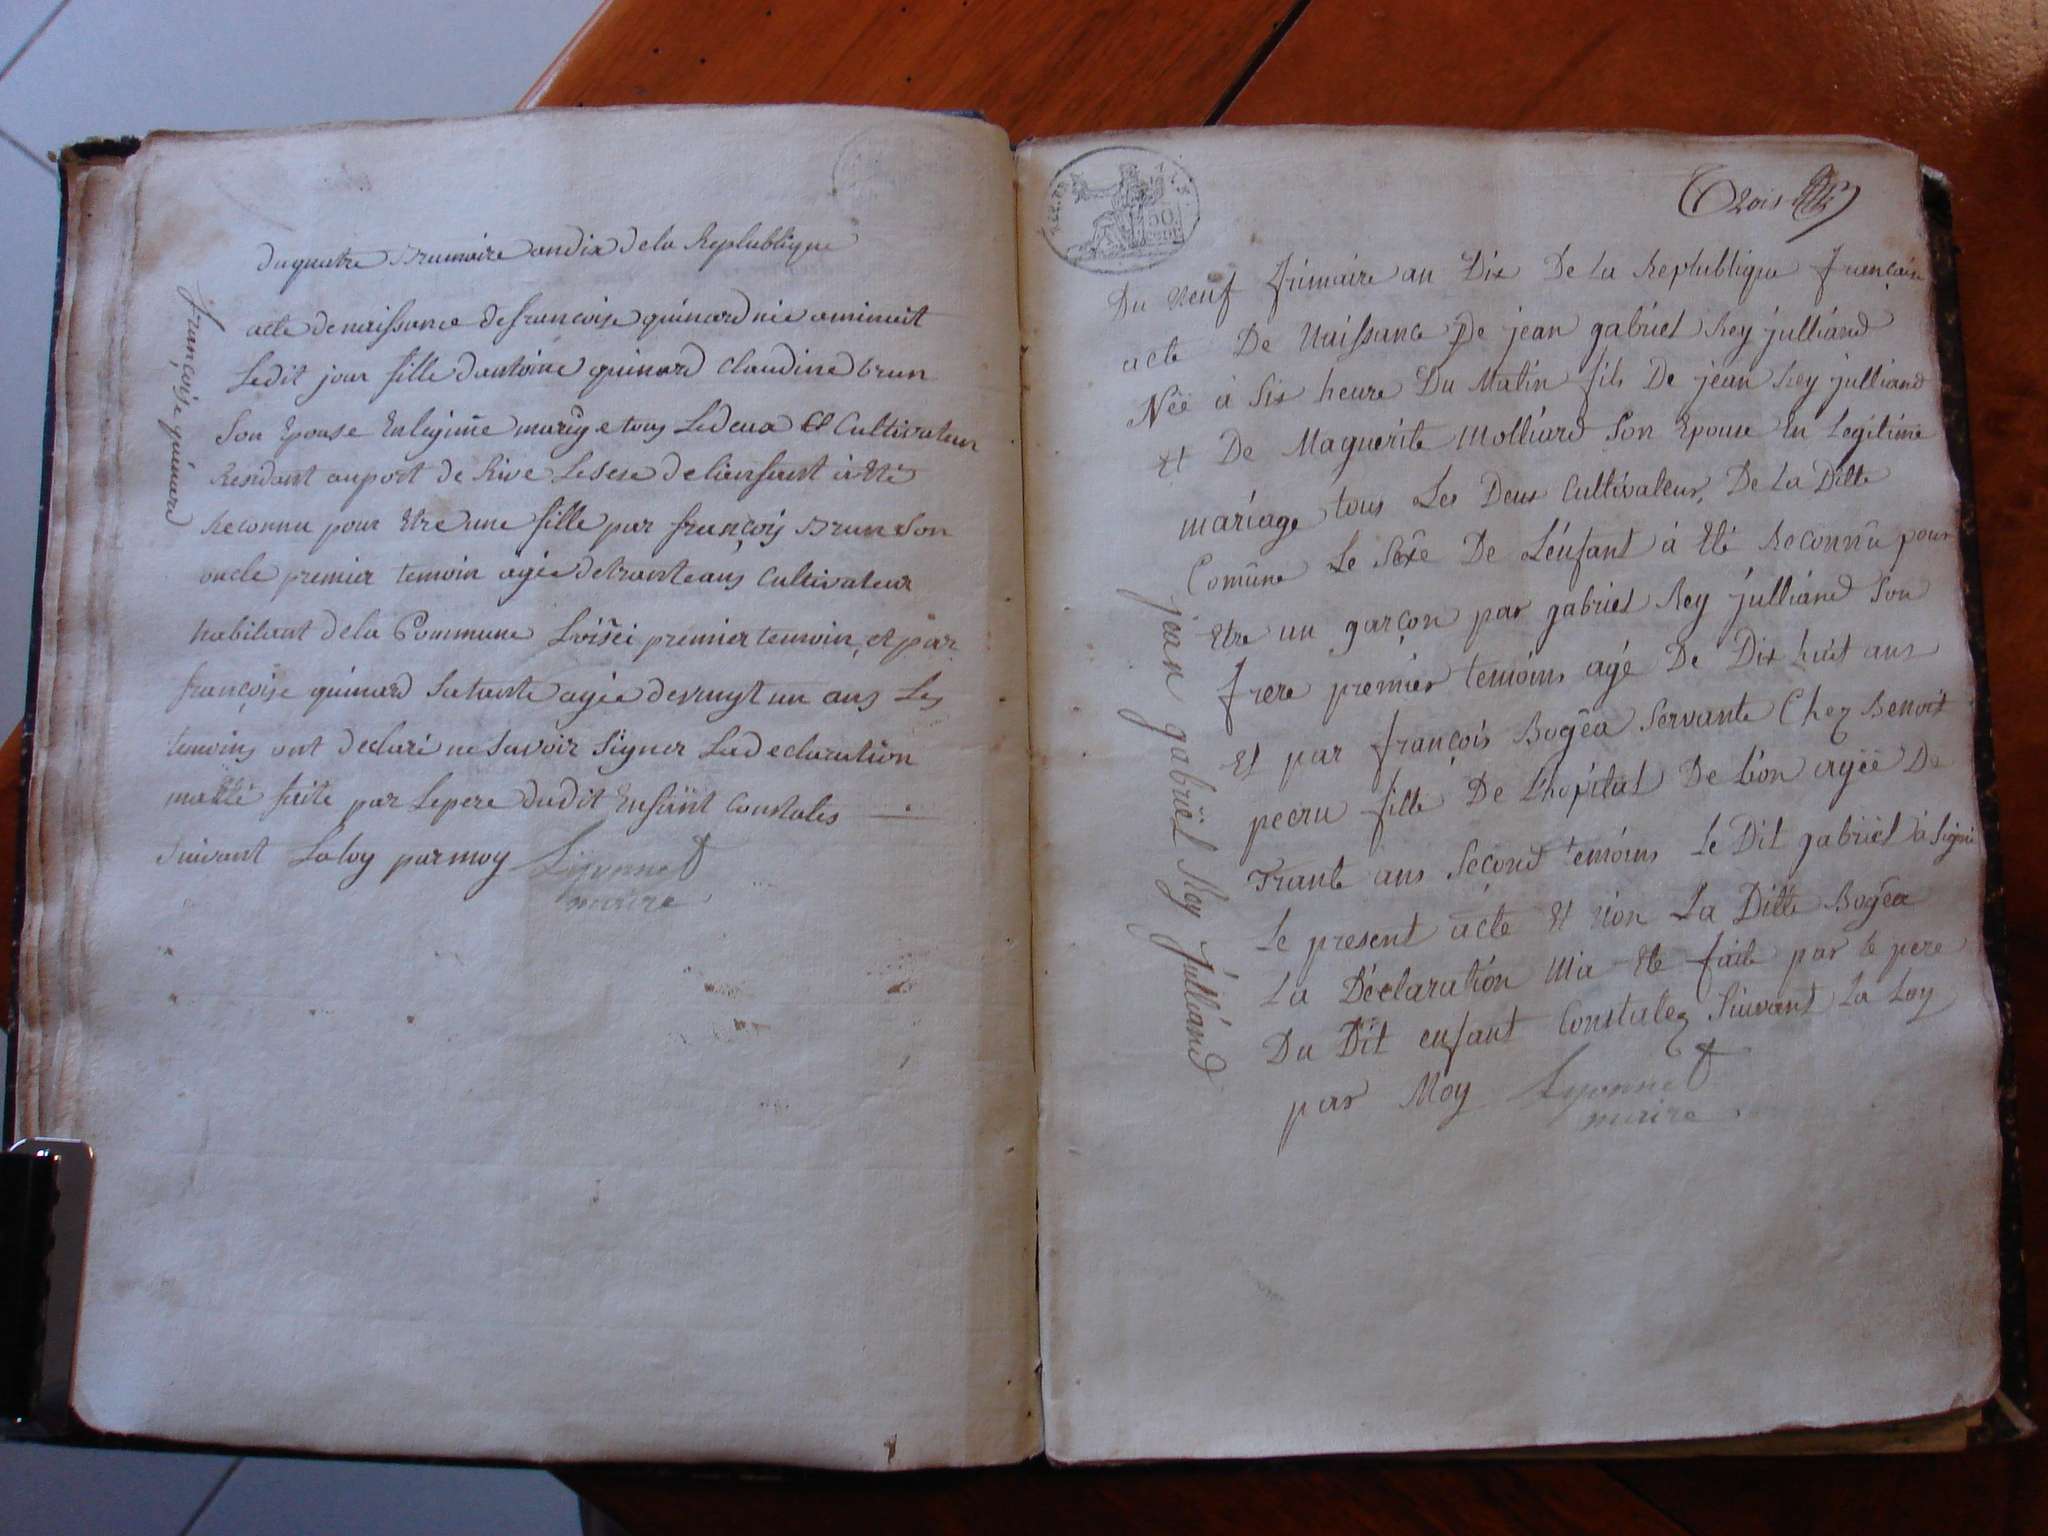 du quatre Brumaire an dix de la Replublique
françoise quinard
acte de naissance de francoise quinard née a minuit
Ledit jour fille d antoine quinard claudine brun
Son Epouse En legime mariage tous Ledeux Cultivateur
Resident au port de Rive Le sexe de lienfant à Eté
Reconnu pour Etre une fille par françois Brun Son
oncle premier temoin agée de trante ans Cultivateur
habitant de la Commune Loisei premier temoin, et par
françoise quinard Sa tante agée de vingt un ans Les
temoins ont declaré ne Savoir Signer La declaration
matté faite par Le pere dudit Enfant Constatés
Suivant La loy par moy Liyonnet
maire
Trois
Du neuf frimaire an Dix De La Replublique françaie
acte De Naissance De jean gabriel Rey julliand
Née à Six heure Du Matin fils De jean Rey julliand
Et De Maguerite Molliard Son Epouse En Legitime
mariage tous Les Deux Cultivateur, De La Ditte
Comûne Le Sexe De L'enfant à Eté Reconnu pour
Etre un garçon par gabriel Rey julliand Son
frere premier temoins agé De Dix huit ans
Et par françois Bogêa Servante Chez Benoit
pecru fille De L'hopital De Lion agée De
Trante ans Second temoins Le Dit gabriel à Signé
Le present acte Et non La Ditte Bogêa
La Déclaration M'a Ete faite par le pere
Du Dit enfant Constatez Suivant La Loy
par Moy Lyonnet
maire
jean gabriel Rey julliand